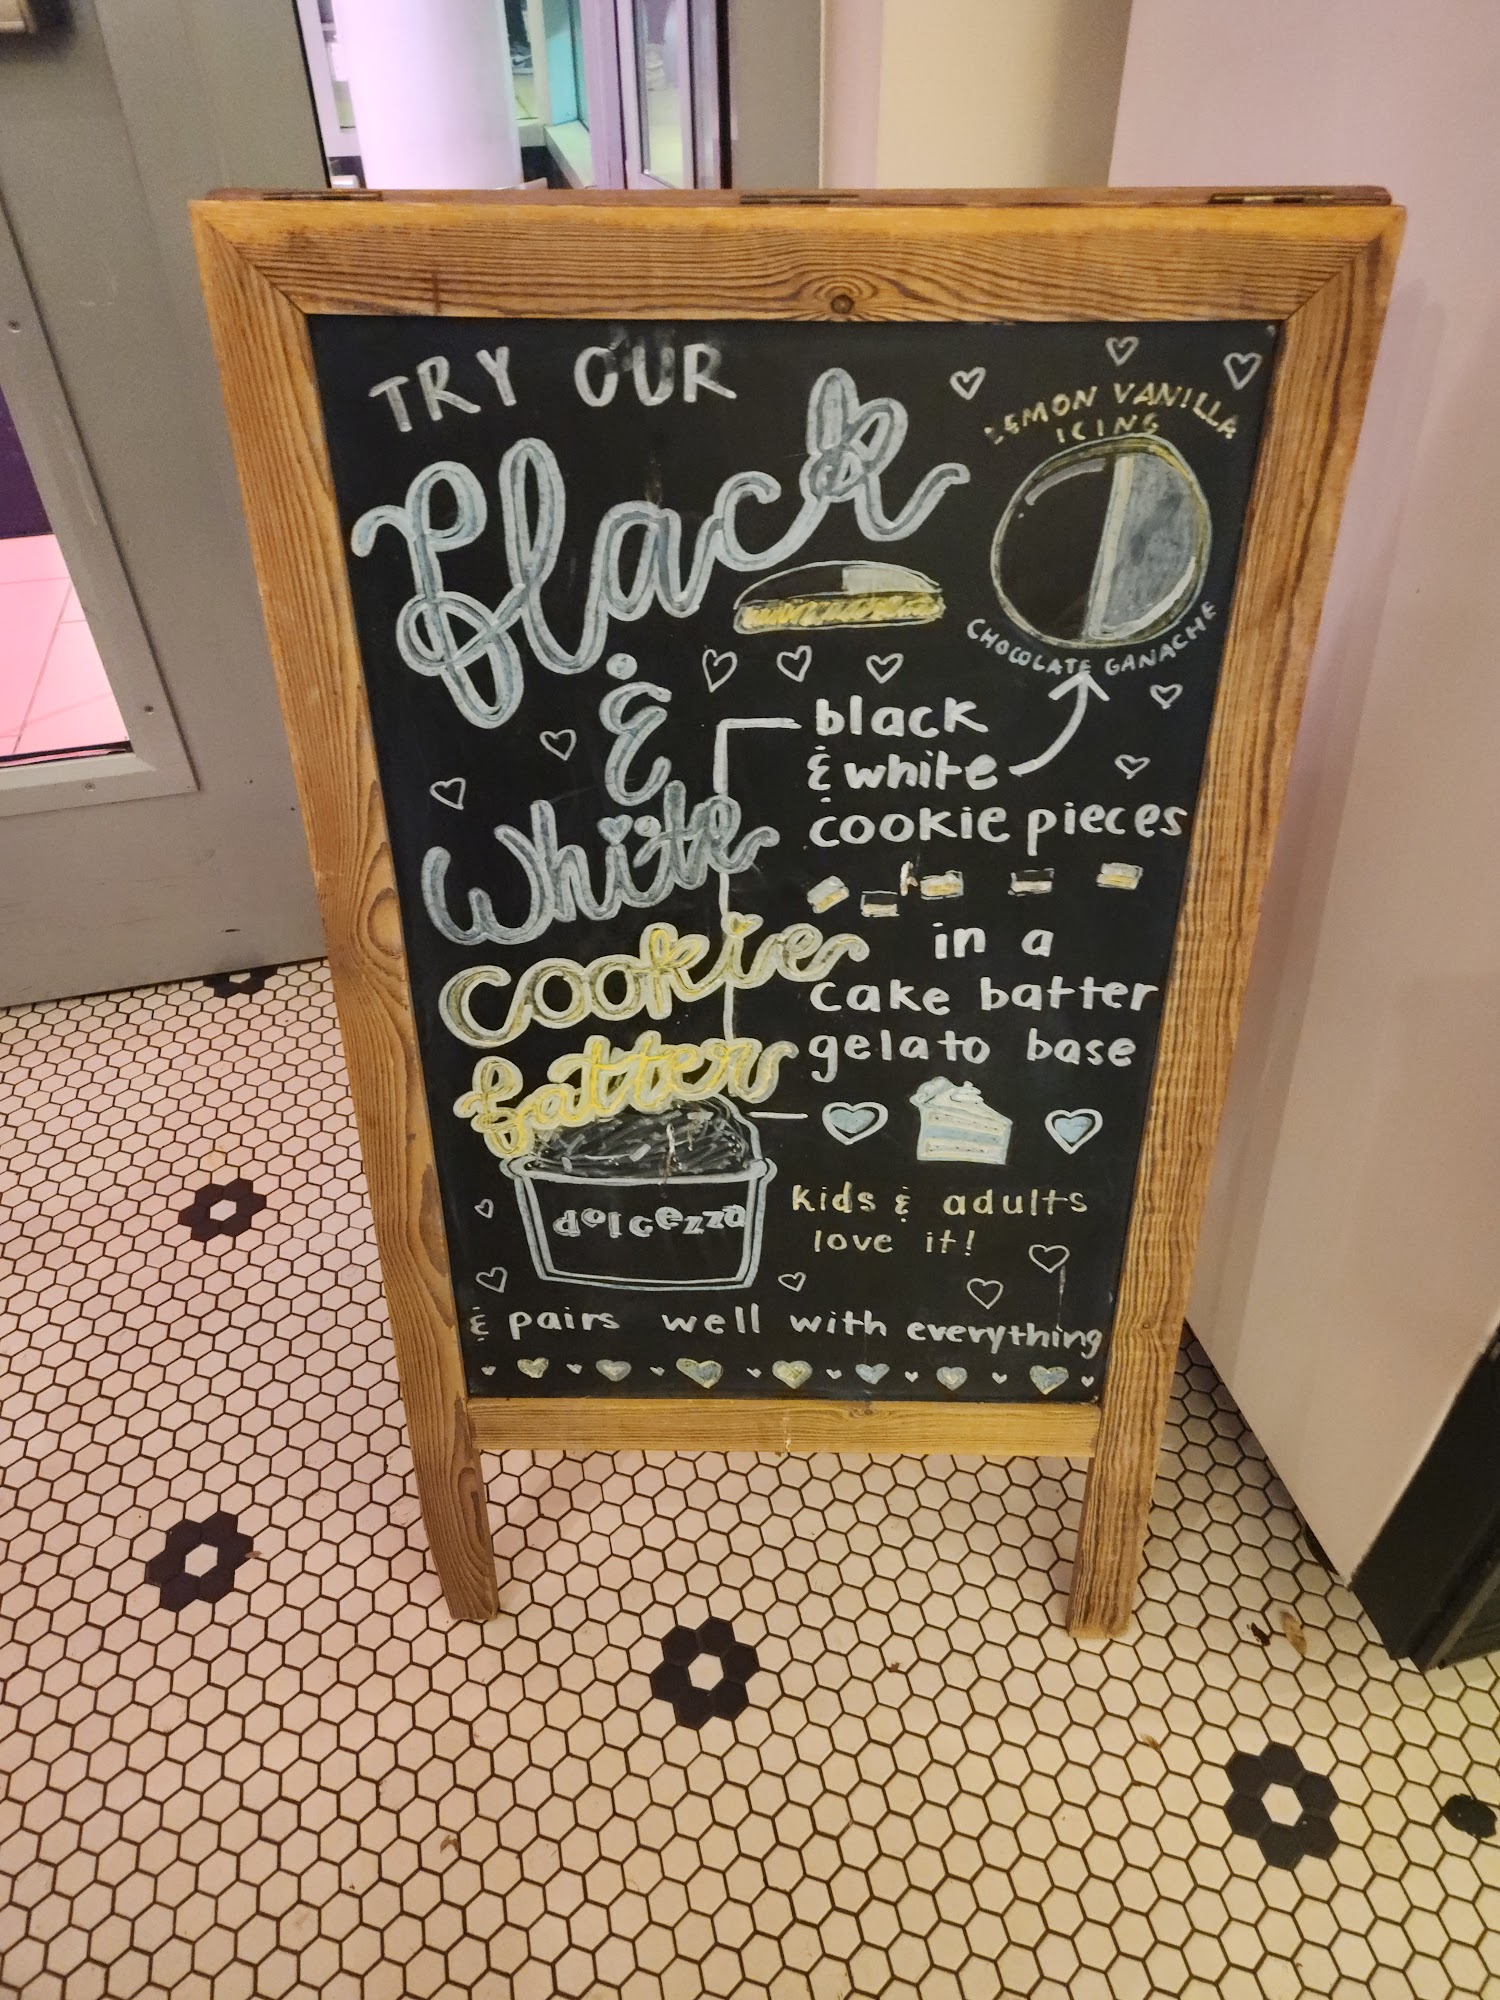 TRY OUR
Black
&
White
Cookie
Batter
LEMON VANILLA
ICING
CHOCOLATE GANACHE
black
& white
cookie pieces
in a
cake batter
gelato base
dolcezza
kids & adults
love it!
& pairs well with everything